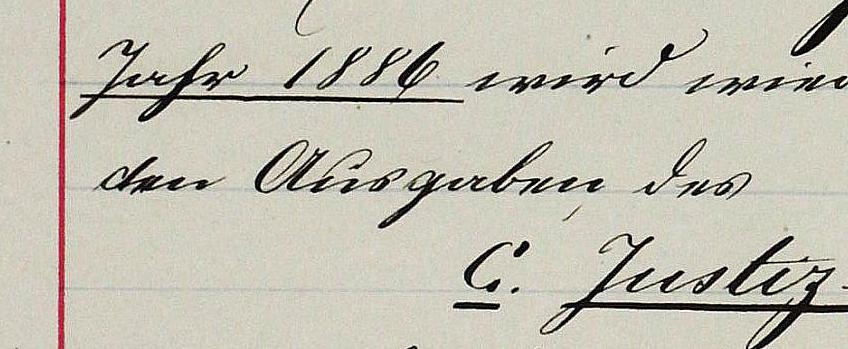 Jahr 1886 wird wied
den Ausgaben des
C. Justiz-